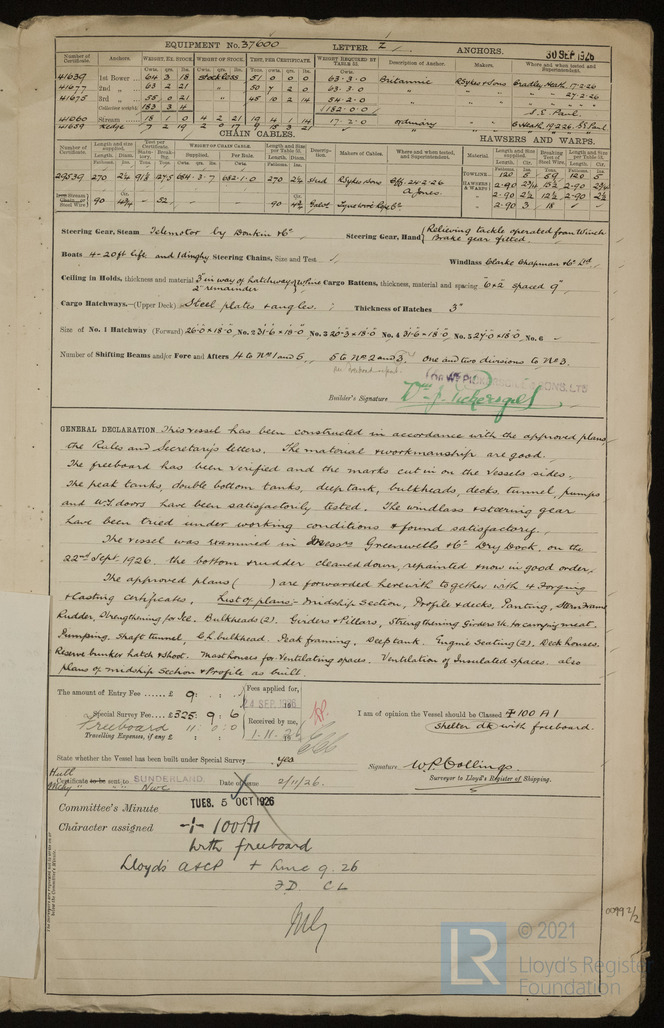 EQUIPMENT No. 37600 LETTER Z ANCHORS. 30 SEP 1926
Number of Certificate. Anchors. WEIGHT, EX. STOCK. WEIGHT OF STOCK. TEST, PER CERTIFICATE. WEIGHT REQUIRED BY TABLE 31. Description of Anchor. Makers. Where and when tested and Superintendent.
41639 1st Bower 64 3 18 Stockless 51 0 0 0 63.3.0 Britannic R Sykes & Sons Cradley Heath 17.2.26
41677 2nd „ 63 2 21 „ 50 7 2 0 63.3.0 „ „ 27.2.26
41675 3rd „ 55 0 21 „ 45 10 2 14 54.2.0 „
Collective weight 183 3 4 182.0.0 S.E. Paul.
41060 Stream 18 1 0 4 2 21 19 4 1 14 17.2.0 Ordinary
41659 Kedge 7 2 19
CHAIN CABLES. HAWSERS AND WARPS.
29539 270 2¼ 684.3.7 682.1.0 270 2¼ Stud R Sykes & Sons 24.2.26
A Jones.
90 52 90
TOWLINE 120 5 59 120 5
HAWSERS & WARPS 2-90 2¾ 15½ 2-90 2¾
„ 2-90 2½ 12½ 2-90 2½
„ 2-90 3 18
Steering Gear, Steam Telemotor by Donkin & Co Steering Gear, Hand Relieving tackle operated from Winch
Brake gear fitted.
Boats 4-20ft life and 1 dinghy Steering Chains, Size and Test Windlass Clarke Chapman & Co Ld
Ceiling in Holds, thickness and material 3" in way of hatchways 2" remainder pine Cargo Battens, thickness, material and spacing 6x2 spaced 9"
Cargo Hatchways.—(Upper Deck) Steel plates & angles. Thickness of Hatches 3"
Size of No. 1 Hatchway (Forward) 26.0 x 18.0 No. 2 31.6 x 18.0 No. 3 20.3 x 18.0 No. 4 31.6 x 18.0 No. 5 27.0 x 18.0 No. 6 -
Number of Shifting Beams and/or Fore and Afters 4 to Nos 1 and 5, 5 to Nos 2 and 3. One and two divisions to No 3.
Builder's Signature
GENERAL DECLARATION This vessel has been constructed in accordance with the approved plans,
the Rules and Secretary's letters. The material & workmanship are good.
The freeboard has been verified and the marks cut in on the vessels sides.
The peak tanks, double bottom tanks, deep tank, bulkheads, decks, tunnel, pumps
and W.T. doors have been satisfactorily tested. The windlass & steering gear
have been tried under working conditions & found satisfactory.
The vessel was examined in Messrs Greenwells & Co Dry Dock, on the
22nd Sept. 1926. the bottom & rudder cleaned down, repainted & now in good order.
The approved plans ( ) are forwarded herewith together with 4 Forging
& Casting certificates. List of plans:- Midship Section, Profile & decks, Panting, Stern Frame
Rudder, Strengthening for Ice. Bulkheads (2). Girders & Pillars, Strengthening Girders &c for carrying meat.
Pumping. Shaft tunnel, C.L. bulkhead. Peak framing. Deep tank. Engine Seating (2). Deck houses.
Reserve bunker hatch & shoot. Masthouses for Ventilating spaces. Ventilation of Insulated spaces. also
plans of midship Section & Profile as built.
The amount of Entry Fee ...... £ 9 : : Fees applied for,
24 SEP 1926
Special Survey Fee... £ 325 : 9 : 6
Freeboard 11 : 0 : 0
Received by me,
1.11.26
Travelling Expenses, if any £ : :
I am of opinion the Vessel should be Classed ✠ 100 A 1
Shelter dk with freeboard.
State whether the Vessel has been built under Special Survey yes
Signature W.P. Collings
Surveyor to Lloyd's Register of Shipping.
Hull
Certificate to be sent to SUNDERLAND. Date of issue 2/11/26.
Mchy „ „ Newc
Committee's Minute TUES. 5 OCT 1926
Character assigned ✠ 100A1
with freeboard
Lloyd's A & CP + LMC 9.26
FD CL
0099 2/2
LR © 2021
Lloyd's Register
Foundation